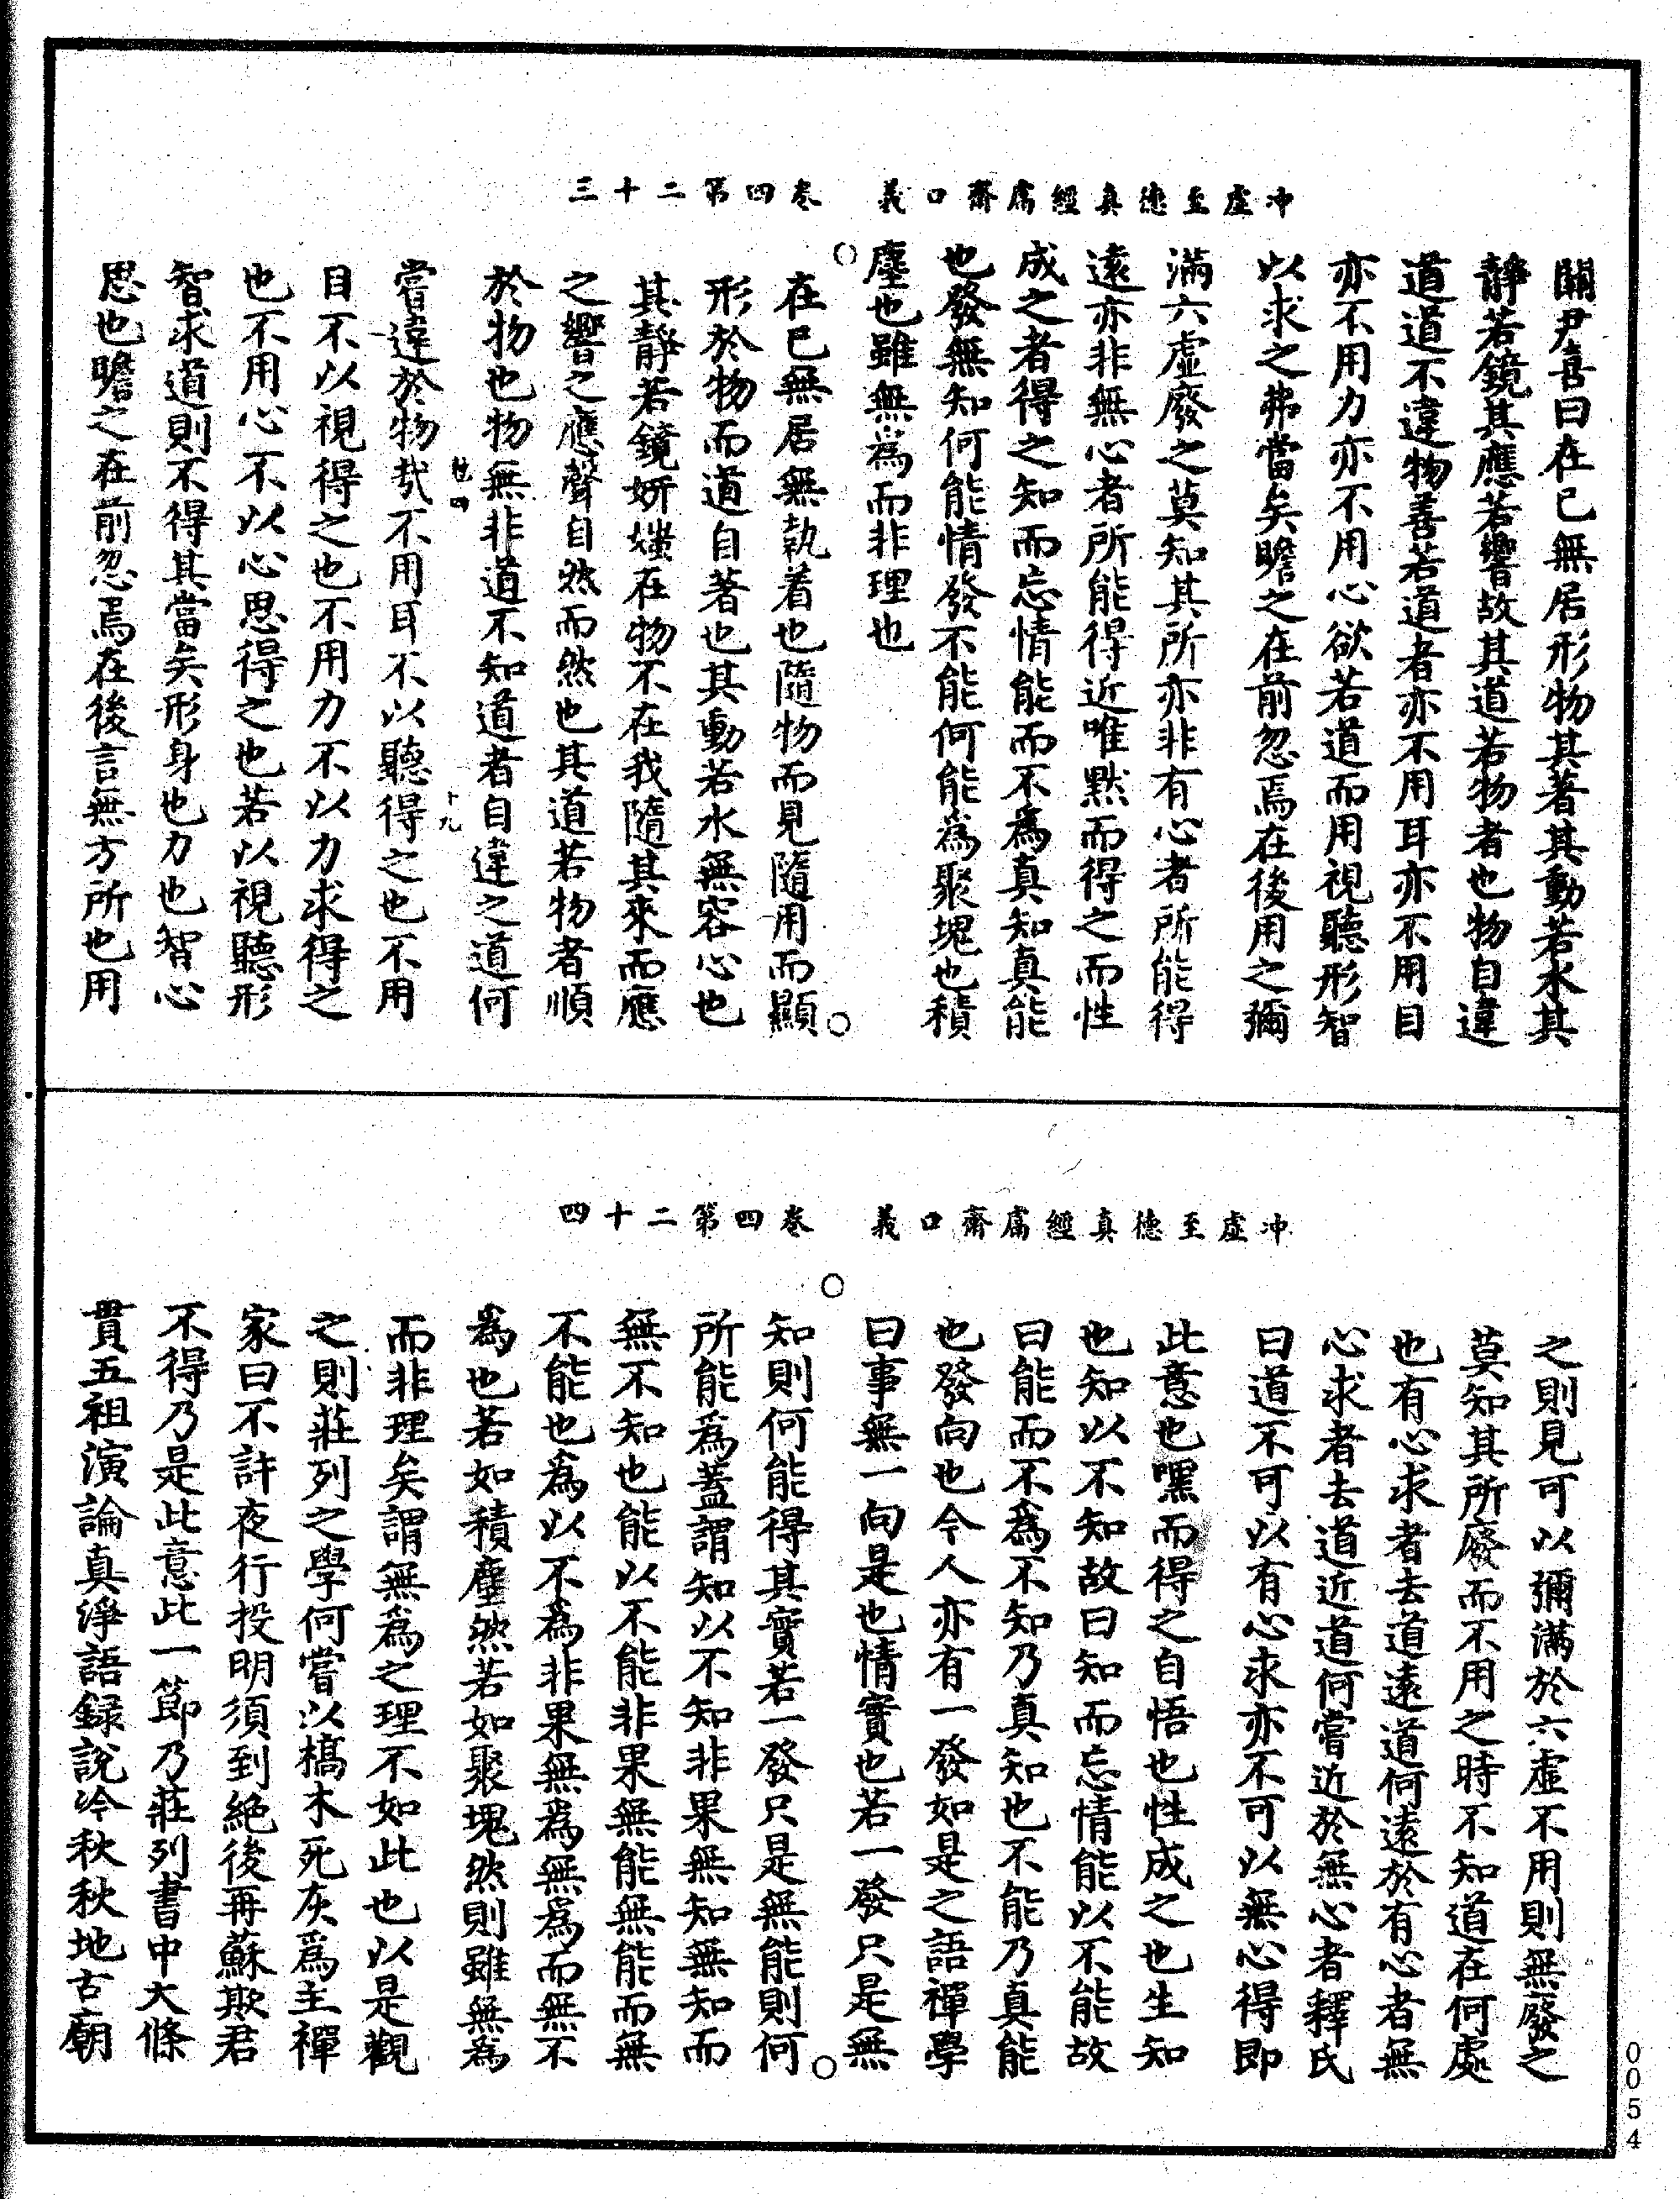 冲虛至德真經鬳齋口義　卷四第二十三
關尹喜曰在已無居形物其著其動若水其
靜若鏡其應若響故其道若物者也物自違
道道不違物善若道者亦不用耳亦不用目
亦不用力亦不用心欲若道而用視聽形智
以求之弗當矣瞻之在前忽焉在後用之彌
滿六虛廢之莫知其所亦非有心者所能得
遠亦非無心者所能得近唯默而得之而性
成之者得之知而忘情能而不爲真知真能
也發無知何能情發不能何能爲聚塊也積
塵也雖無爲而非理也
在已無居無執着也隨物而見隨用而顯
形於物而道自著也其動若水無容心也
其靜若鏡妍媸在物不在我隨其來而應
之響之應聲自然而然也其道若物者順
於物也物無非道不知道者自違之道何
嘗違於物哉不用耳不以聽得之也不用
目不以視得之也不用力不以力求得之
也不用心不以心思得之也若以視聽形
智求道則不得其當矣形身也力也智心
思也瞻之在前忽焉在後言無方所也用
四
十九
冲虛至德真經鬳齋口義　卷四第二十四
之則見可以彌滿於六虛不用則無廢之
莫知其所廢而不用之時不知道在何處
也有心求者去道遠道何遠於有心者無
心求者去道近道何嘗近於無心者釋氏
曰道不可以有心求亦不可以無心得即
此意也嘿而得之自悟也性成之也生知
也知以不知故曰知而忘情能以不能故
曰能而不爲不知乃真知也不能乃真能
也發向也今人亦有一發如是之語禪學
曰事無一向是也情實也若一發只是無
知則何能得其實若一發只是無能則何
所能爲蓋謂知以不知非果無知無知而
無不知也能以不能非果無能無能而無
不能也爲以不爲非果無爲無爲而無不
爲也若如積塵然若如聚塊然則雖無爲
而非理矣謂無爲之理不如此也以是觀
之則莊列之學何嘗以槁木死灰爲主禪
家曰不許夜行投明須到絕後再蘇欺君
不得乃是此意此一節乃莊列書中大條
貫五祖演論真淨語録説冷秋秋地古廟
0054